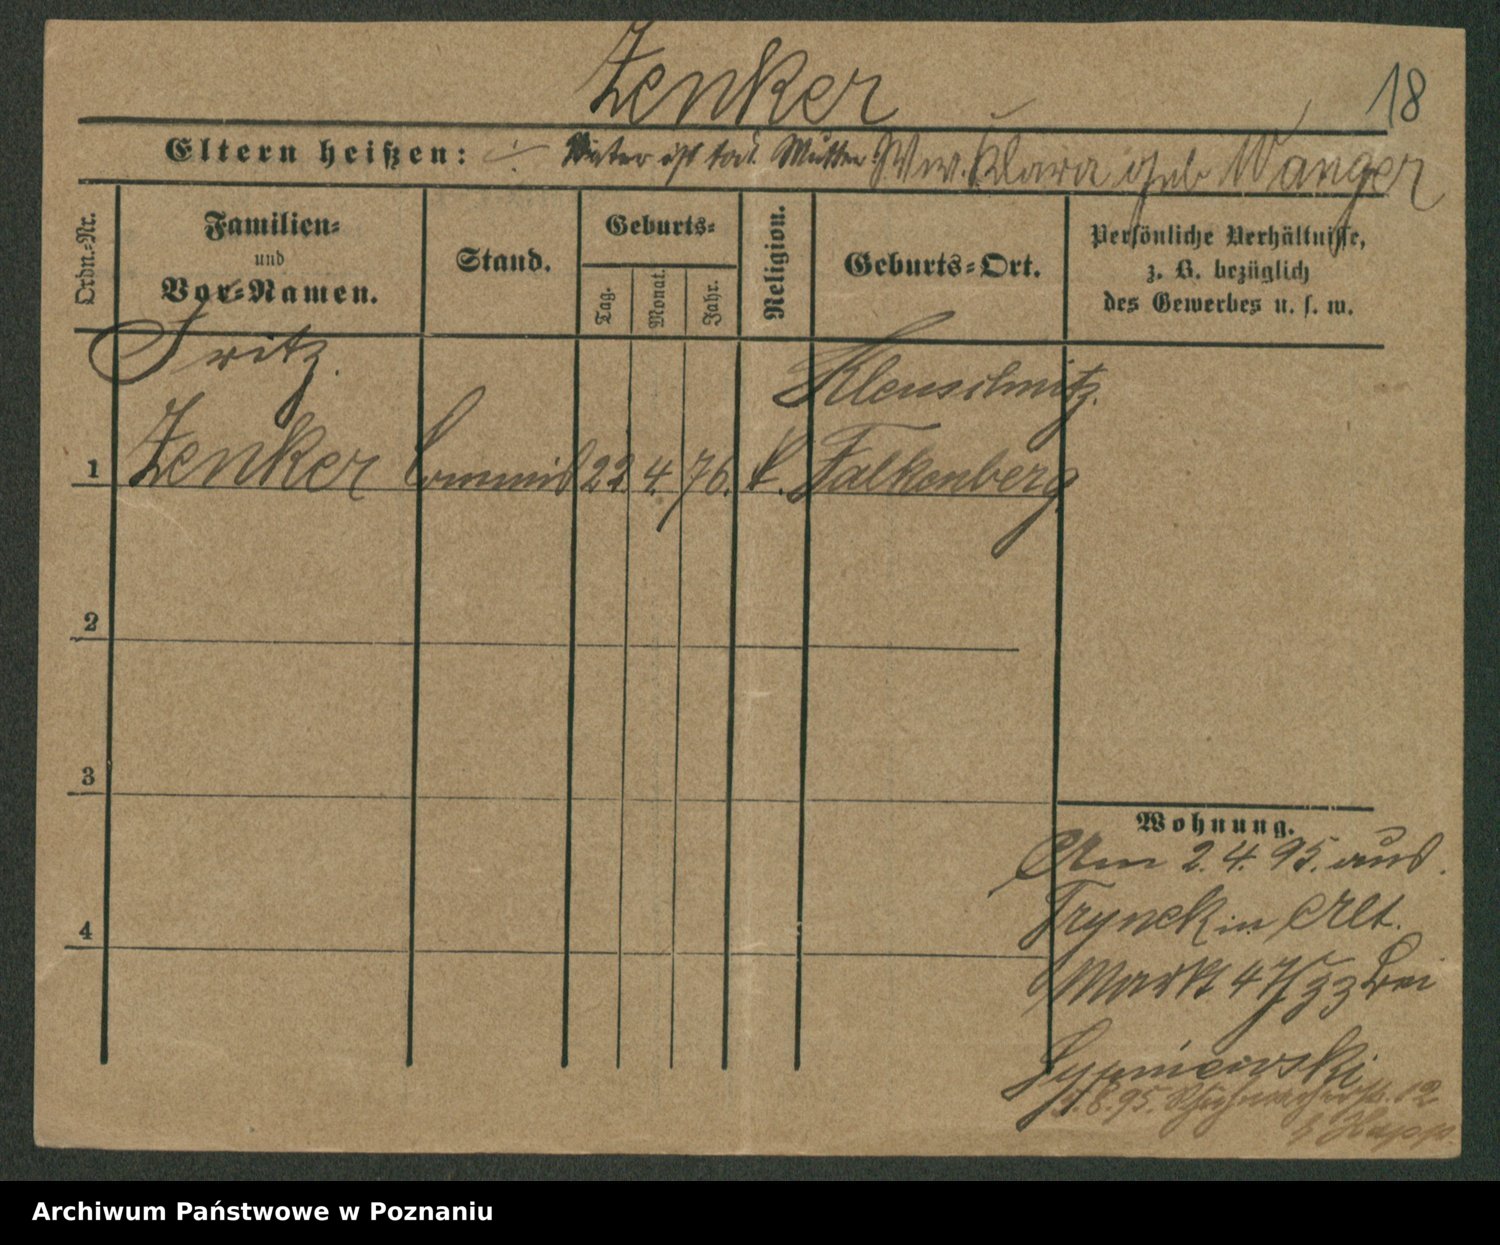 Zenker
18
Eltern heißen: Vater ist tot. Mutter: Ww. Klara geb Wanger
Ordn.-Nr.
Familien- und Vor-Namen.
Stand.
Geburts-
Tag.
Monat.
Jahr.
Religion.
Geburts-Ort.
Persönliche Verhältnisse,
z. B. bezüglich
des Gewerbes u. s. w.
Fritz.
1 Zenker Commis 22 4. 76. k. Falkenberg
2
3
4
Wohnung.
Am 2. 4. 95. aus
Trynek in Alt.
Markt 47 bei
95. 12
Archiwum Państwowe w Poznaniu